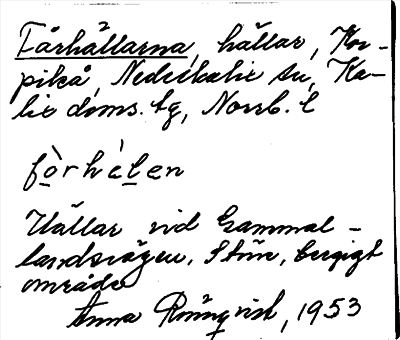 Fårhällarna, hällar, Kor-
pikå, Nederkalix sn, Ka-
lix doms. tg, Norrb. l
fòrhálen
Hällar vid Gammal-
landsvägen. Stör, bergigt
område
Anna Rönnqvist, 1953